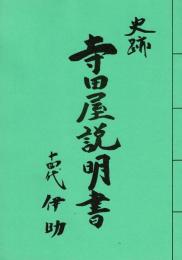 史跡
寺田屋説明書
十四代 伊助